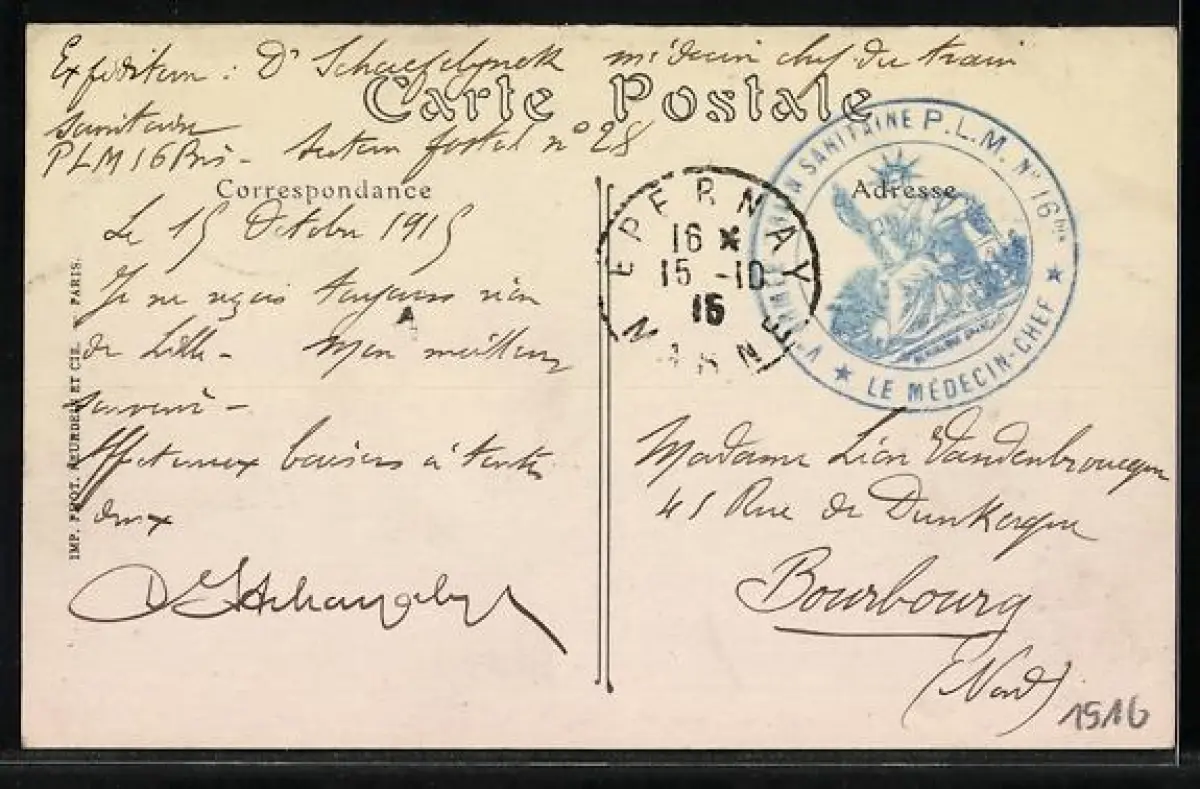 Expéditeur : Dr Schaefelynck médecin chef du train
sanitaire
PLM 16 Bis - Secteur postal n° 28
Carte Postale
Correspondance
Adresse
Le 15 Octobre 1915
Je ne reçois toujours rien
de Lille - Mon meilleur
souvenir -
Affectueux baisers à toutes
deux
EPERNAY
16 *
15 -10
15
MARNE
SANITAINE P.L.M. N° 16 bis
★ LE MÉDECIN-CHEF ★
Madame Léon Vandenbroucque
45 Rue de Dunkerque
Bourbourg
(Nord)
1916
IMP. PHOT. NEURDEIN ET CIE. - PARIS.